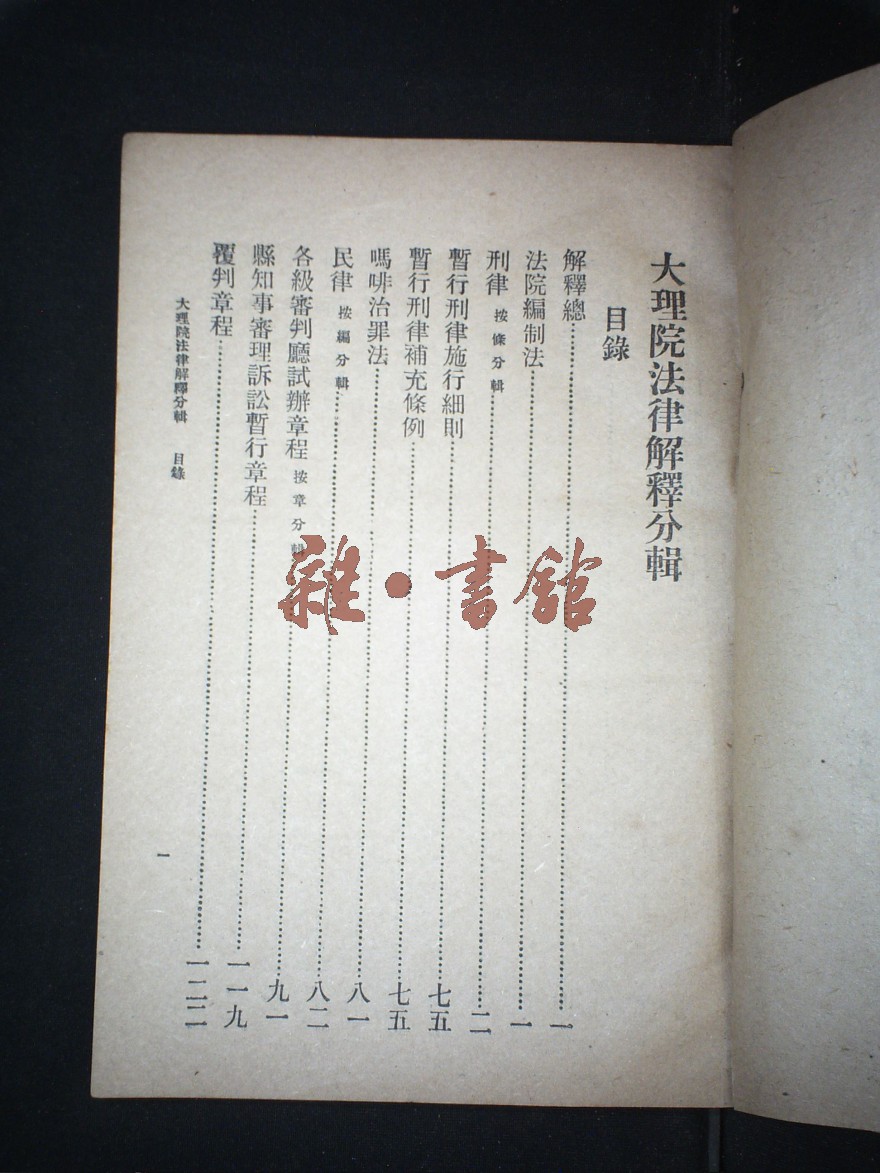 大理院法律解釋分輯
目錄
解釋總……一
法院編制法……一
刑律 按條分輯……二
暫行刑律施行細則……七五
暫行刑律補充條例……七五
嗎啡治罪法……八一
民律 按編分輯……八二
各級審判廳試辦章程 按章分輯……九一
縣知事審理訴訟暫行章程……一一九
覆判章程……一二二
大理院法律解釋分輯 目錄
一
雜·書館